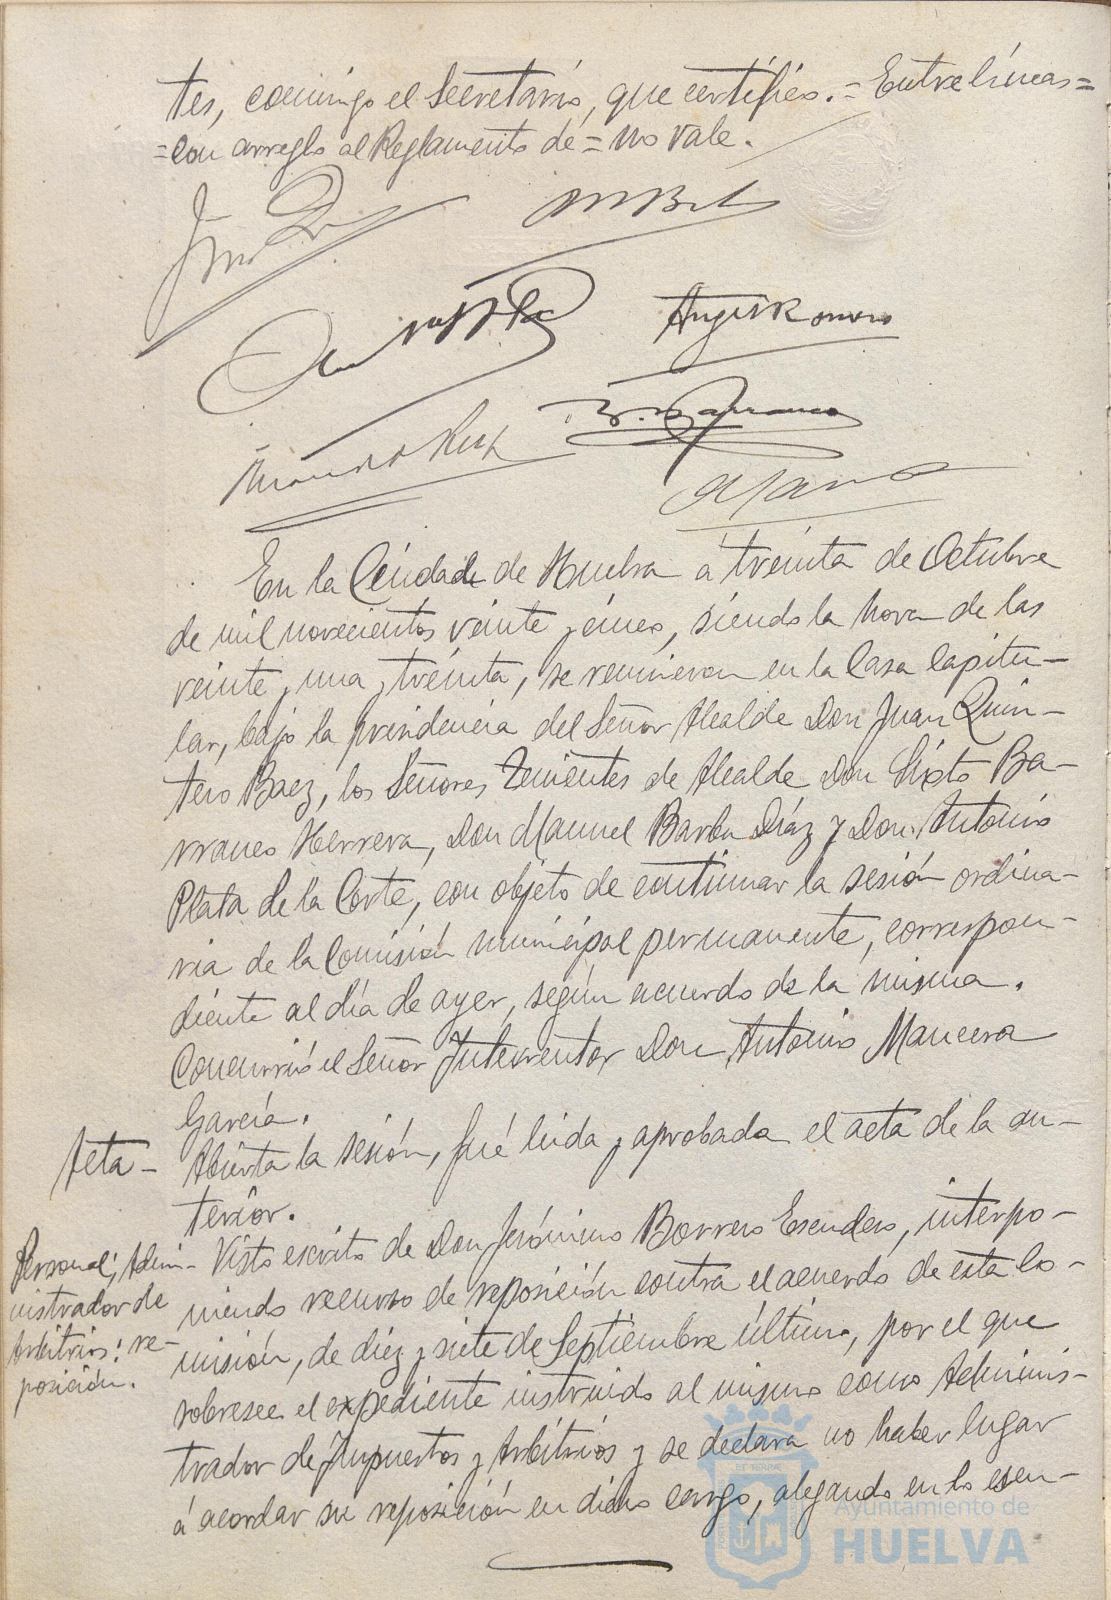 tes, conmigo el Secretario, que certifico.= Entrelíneas=
=con arreglo al Reglamento de = no vale.
Angel Romero
En la Ciudad de Huelva á treinta de Octubre
de mil novecientos veinte y cinco, siendo la hora de las
veinte y una y treinta, se reunieron en la Casa Capitu-
lar, bajo la presidencia del Señor Alcalde Don Juan Quin-
tero Baez, los Señores Tenientes de Alcalde Don Sixto Ba-
rranco Herrera, Don Manuel Barba Díaz y Don Antonio
Plata de la Corte, con objeto de continuar la sesión ordina-
ria de la Comisión municipal permanente, correspon-
diente al día de ayer, según acuerdo de la misma.
Concurrió el Señor Interventor Don Antonio Mancera
García.
Acta-
Abierta la sesión, fué leida y aprobada el acta de la an-
terior.
Personal; Admi-
nistrador de
Arbitrios: re-
posición.
Visto escrito de Don Jerónimo Borrero Escudero, interpo-
niendo recurso de reposición contra el acuerdo de esta Co-
misión, de diez y siete de Septiembre último, por el que
sobresee el expediente instruido al mismo como Adminis-
trador de Impuestos y Arbitrios y se declara no haber lugar
á acordar su reposición en dicho cargo, alegando en lo esen-
Ayuntamiento de
HUELVA